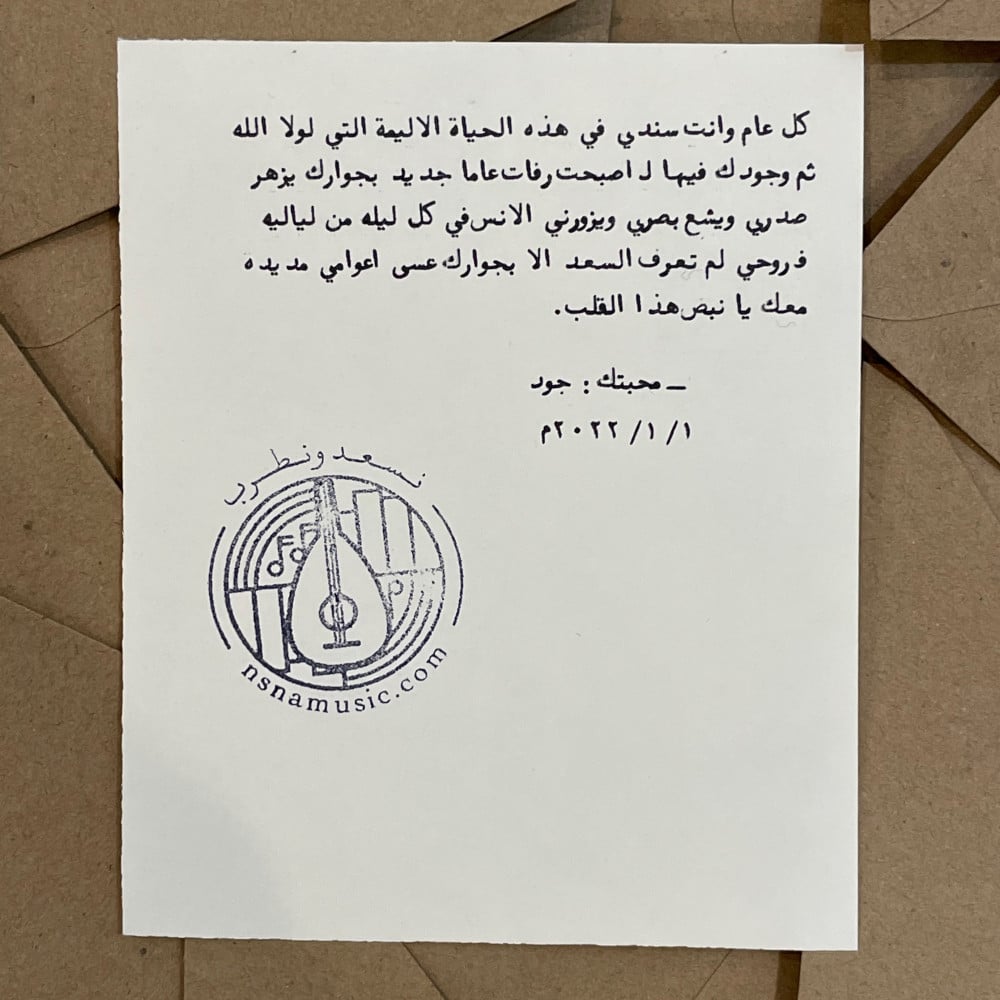 كل عام وانت سندي في هذه الحياة الاليمة التي لولا الله
ثم وجودك فيها لـ اصبحت رفات عاما جديد بجوارك يزهر
صدري ويشع بصري ويزورني الانس في كل ليله من لياليه
فروحي لم تعرف السعد الا بجوارك عسى اعوامي مديده
معك يا نبض هذا القلب.
ـ محبتك : جود
١/ ١/ ٢٠٢٢م
نسعد ونطرب
nsnamusic.com